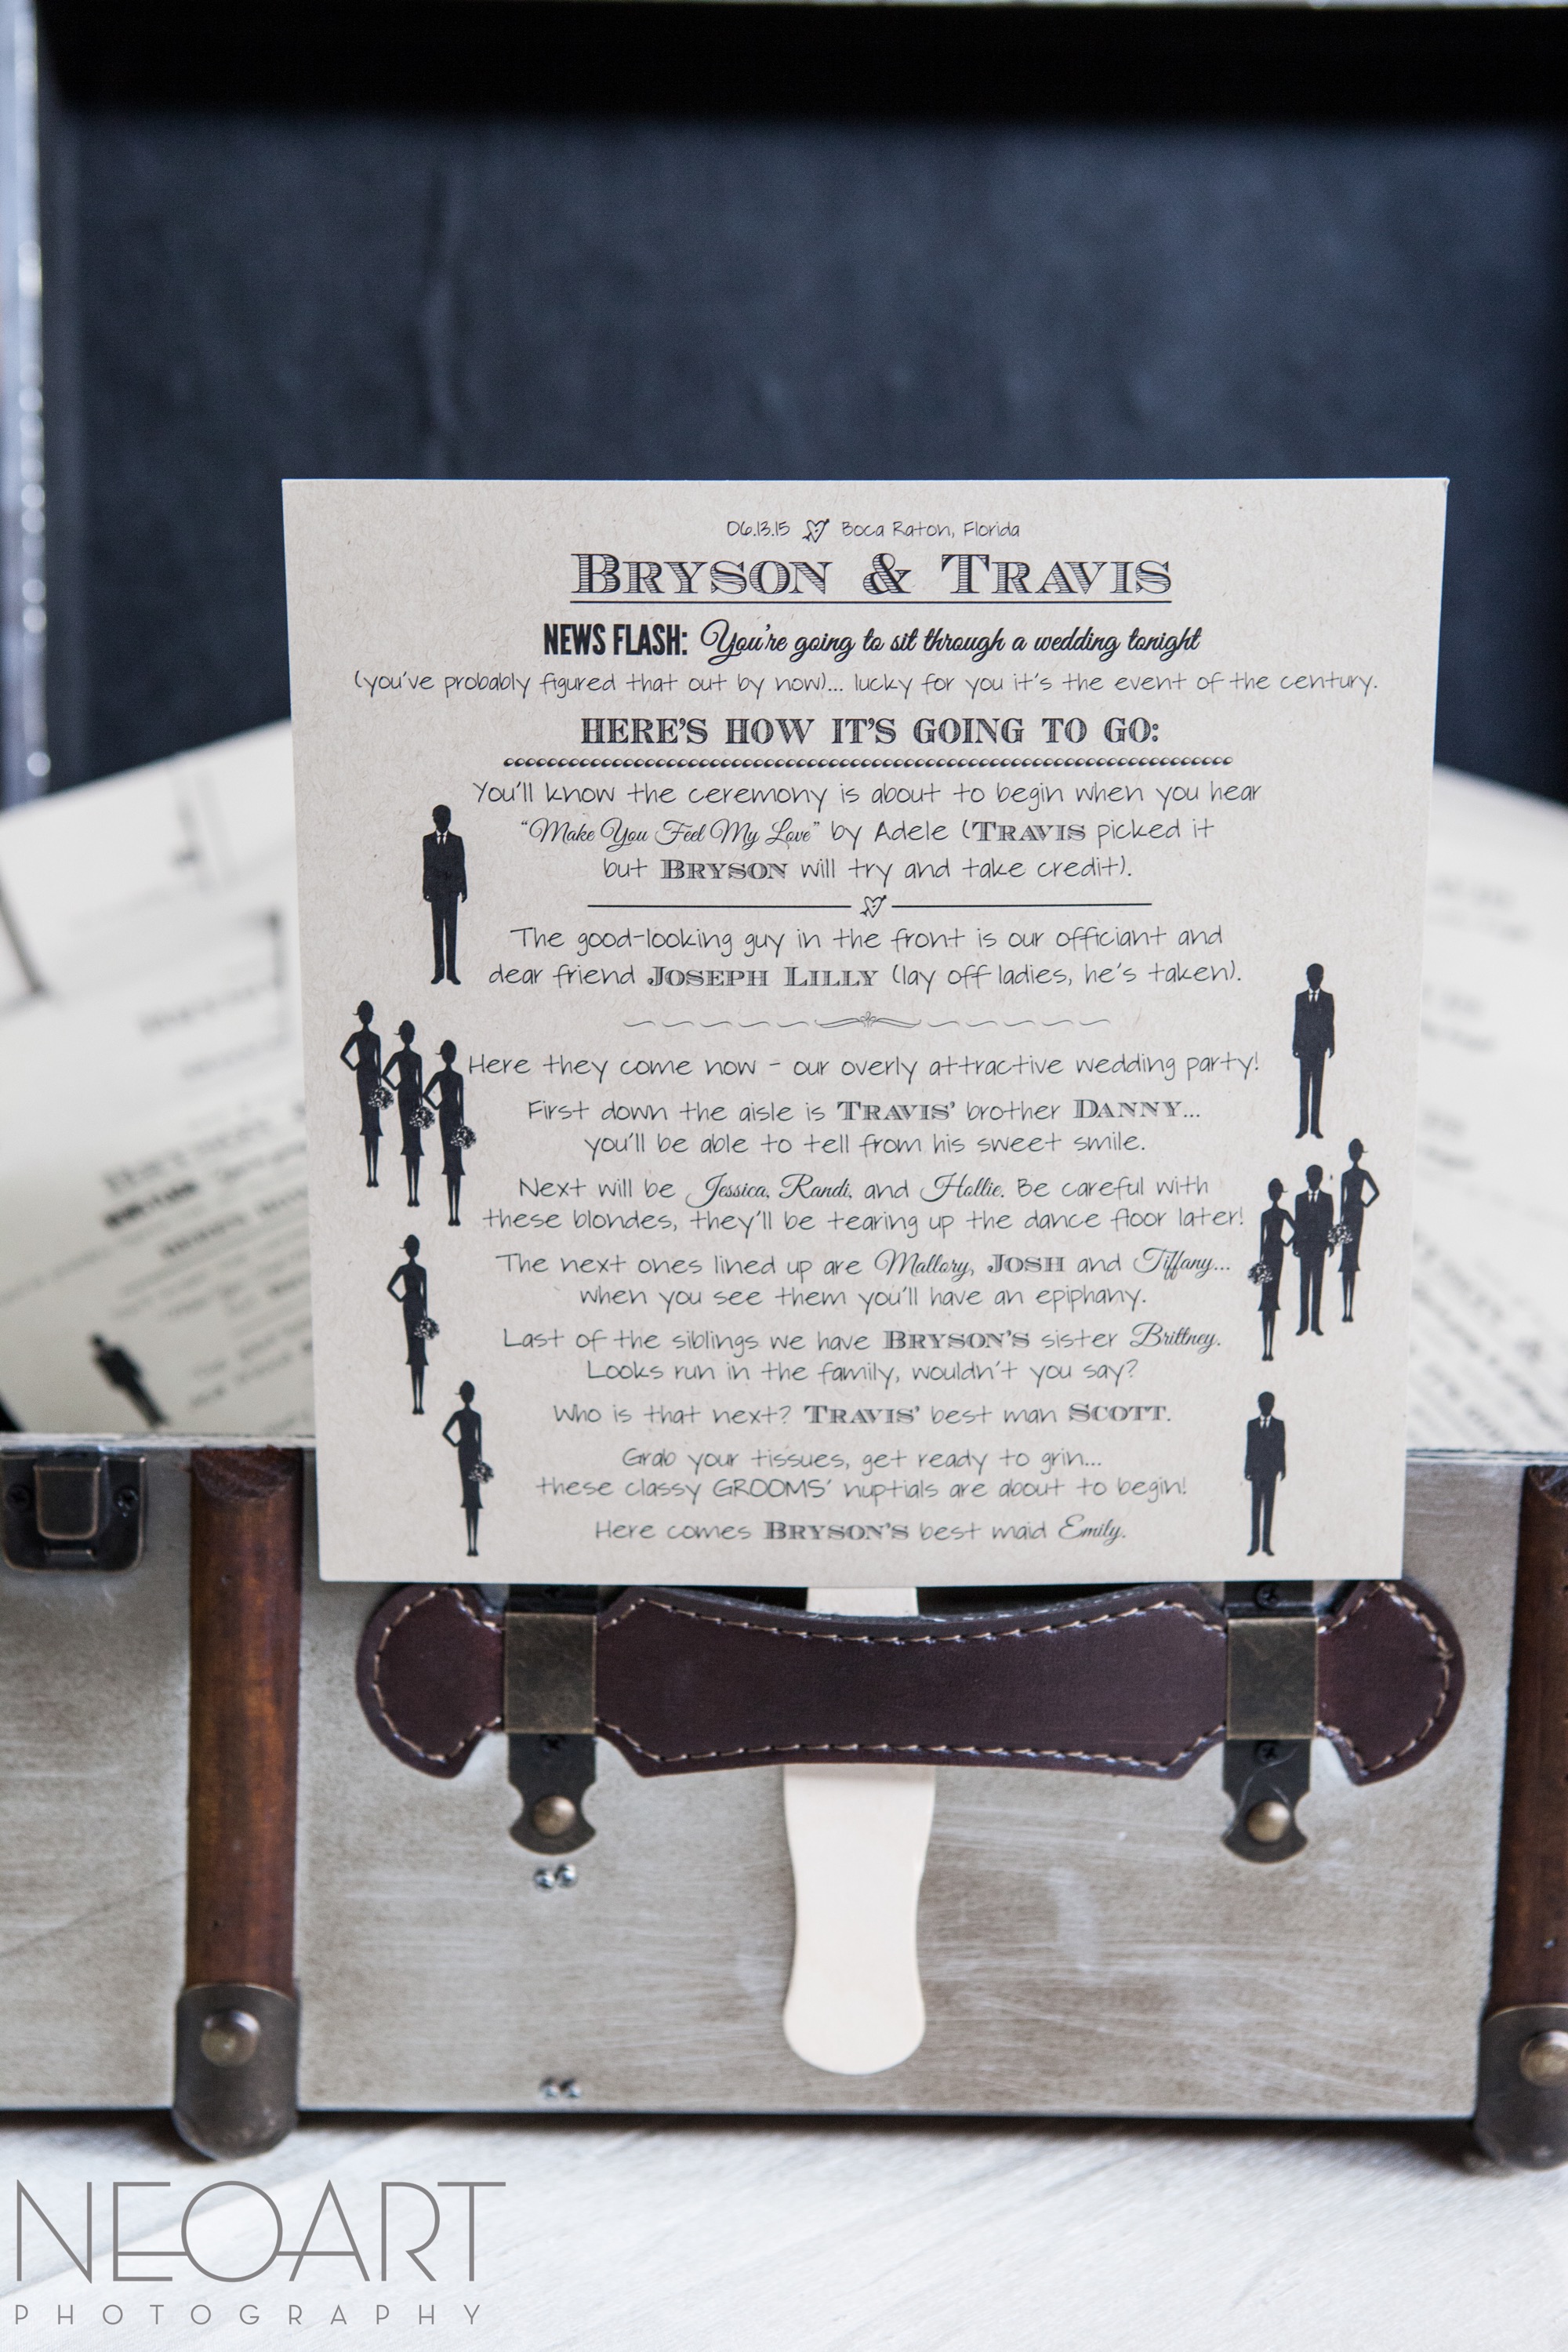 06.13.15 Boca Raton, Florida
BRYSON & TRAVIS
NEWS FLASH: You're going to sit through a wedding tonight
(you've probably figured that out by now)... lucky for you it's the event of the century.
HERE'S HOW IT'S GOING TO GO:
You'll know the ceremony is about to begin when you hear
"Make You Feel My Love" by Adele (TRAVIS picked it
but BRYSON will try and take credit).
The good-looking guy in the front is our officiant and
dear friend JOSEPH LILLY (lay off ladies, he's taken).
Here they come now - our overly attractive wedding party!
First down the aisle is TRAVIS' brother DANNY...
you'll be able to tell from his sweet smile.
Next will be Jessica, Randi, and Hollie. Be careful with
these blondes, they'll be tearing up the dance floor later!
The next ones lined up are Mallory, JOSH and Tiffany...
when you see them you'll have an epiphany.
Last of the siblings we have BRYSON'S sister Brittney.
Looks run in the family, wouldn't you say?
Who is that next? TRAVIS' best man SCOTT.
Grab your tissues, get ready to grin...
these classy GROOMS' nuptials are about to begin!
Here comes BRYSON'S best maid Emily.
NEOART
PHOTOGRAPHY